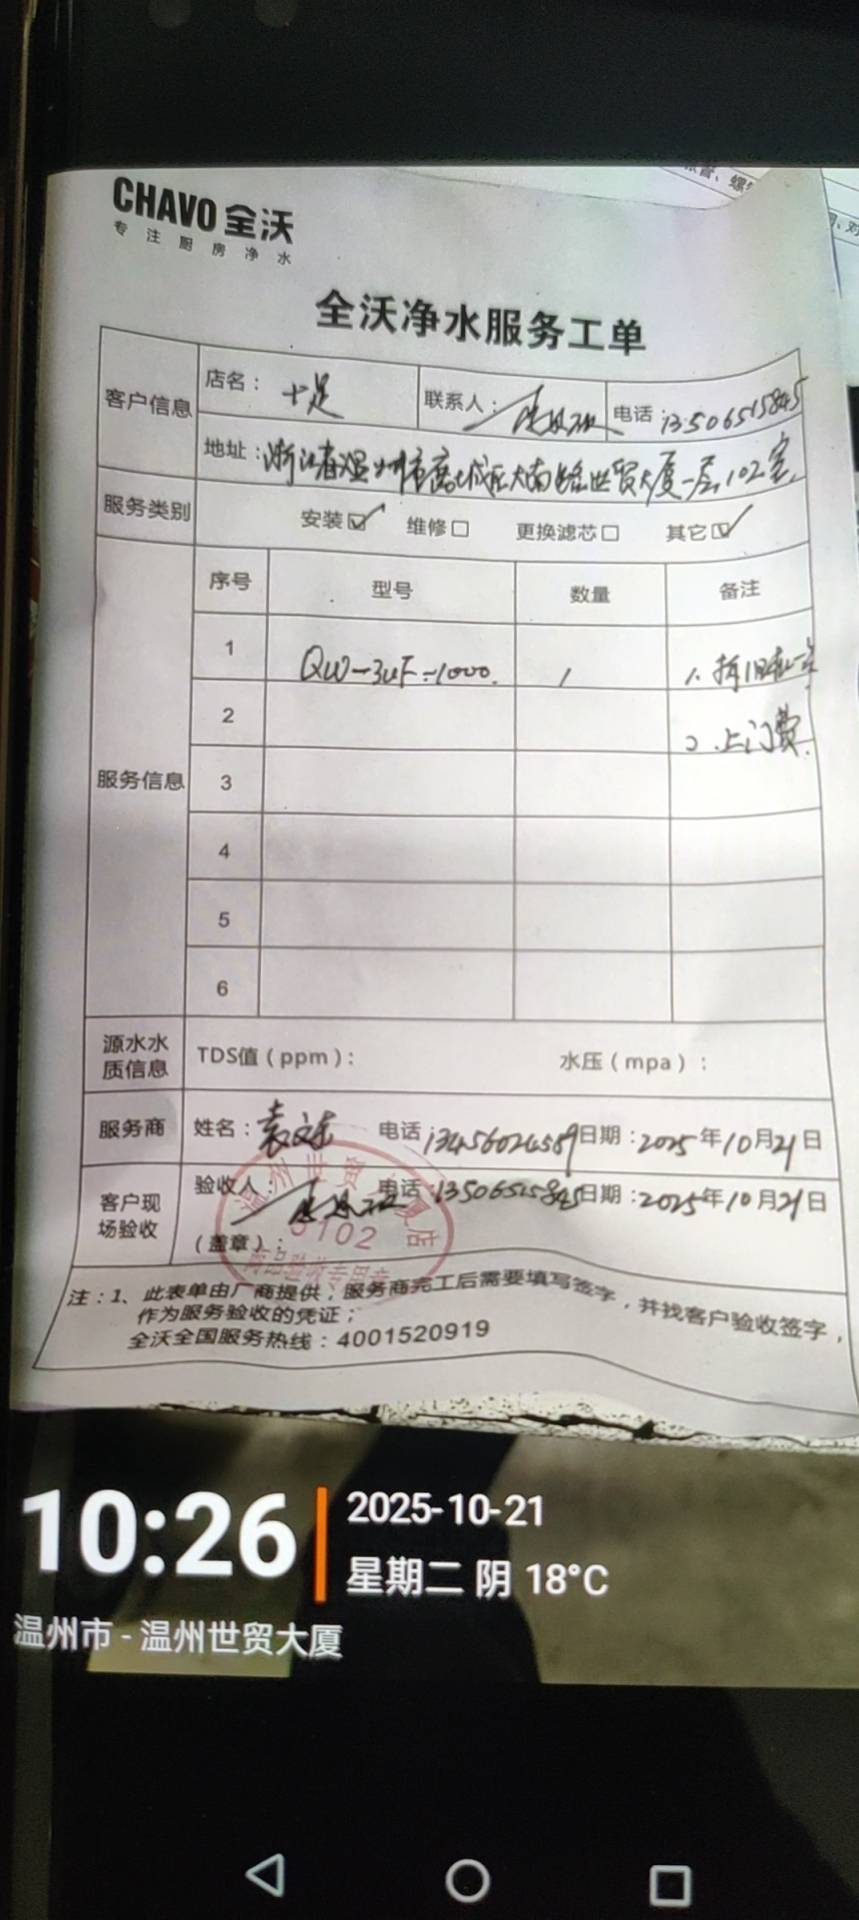 CHAVO 全沃
专注厨房净水
全沃净水服务工单
客户信息 店名：十足 联系人： 电话：13506515845
地址：浙江省温州市鹿城区大南路世贸大厦一层102室
服务类别 安装☑ 维修□ 更换滤芯□ 其它☑
服务信息 序号 型号 数量 备注
1 QW-3UF-1000. 1 1.拆旧机一台
2 2.上门费.
3
4
5
6
源水水质信息 TDS值（ppm）： 水压（mpa）：
服务商 姓名：袁文东 电话：13456024589 日期：2025年10月21日
客户现场验收 验收人： 电话：13506515845 日期：2025年10月21日
（盖章）：
温州世贸 店
5102
商品验收专用章
注：1、此表单由厂商提供，服务商完工后需要填写签字，并找客户验收签字，
作为服务验收的凭证；
全沃全国服务热线：4001520919
10:26
2025-10-21
星期二 阴 18°C
温州市 - 温州世贸大厦